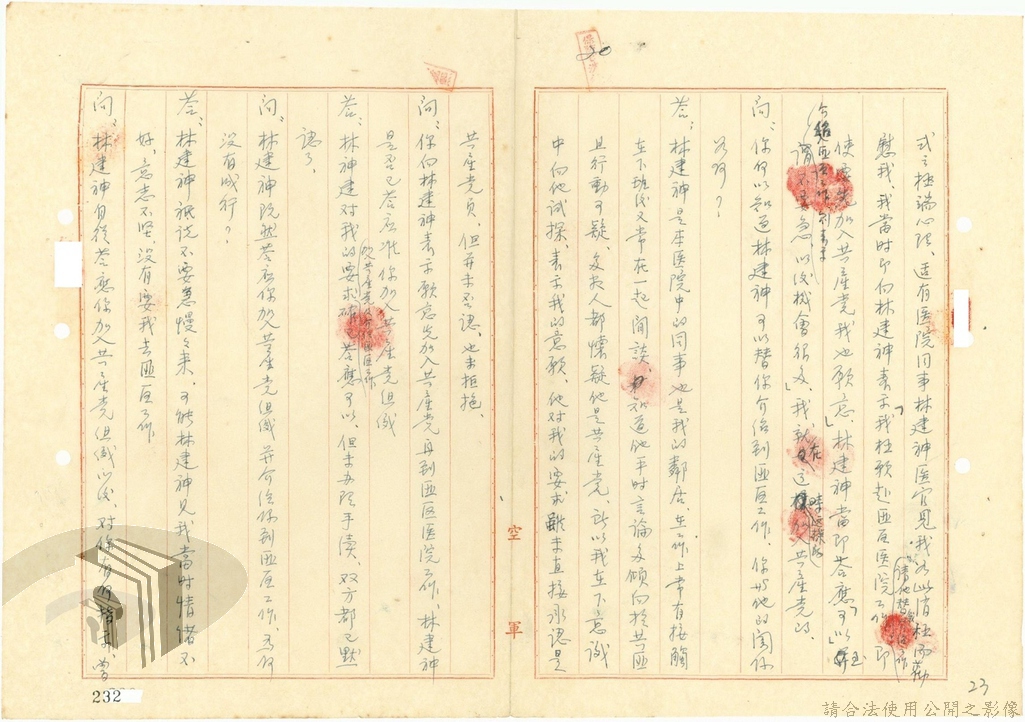 式之極端心理、適有医院同事林建神医官見我如此消極而勸
慰我、我當时即向林建神表示我極願赴匪區医院工作
請他替我
即
使要先加入共產党我也願意」林建神當即答應可以
介紹匪區工作
謂不要急以後机會很多」我就在這時
加入共產党的、
問:你何以知道林建神可以替你介绍到匪區工作、你與他的関係
如何?
答:林建神是本医院中的同事也是我的鄰居、在工作上常有接觸
在下班後又常在一起閒談、知道他平时言論多傾向於共匪
且行動可疑、多数人都懷疑他是共產党、所以我在下意識
中向他試探、表示我的意願、他对我的要求雖未直接承認是
共產党員、但并未否認、也未拒绝、
問:你向林建神表示願意先加入共產党再到匪區医院工作、林建神
是否已答应准你加入共產党组織
答:林神建对我的要求
確已答應可以、但未办理手續、双方都已默
認了、
問:林建神既然答应你加入共產党组織并介绍你到匪區工作、為何
没有成行?
答:林建神祗说不要急慢々来、可能林建神見我當时情绪不
好、意志不坚、没有要我去匪區工作
問:林建神自從答應你加入共產党组織以後、对你有何指示、當
空
軍
20
23
232
請合法使用公開之影像